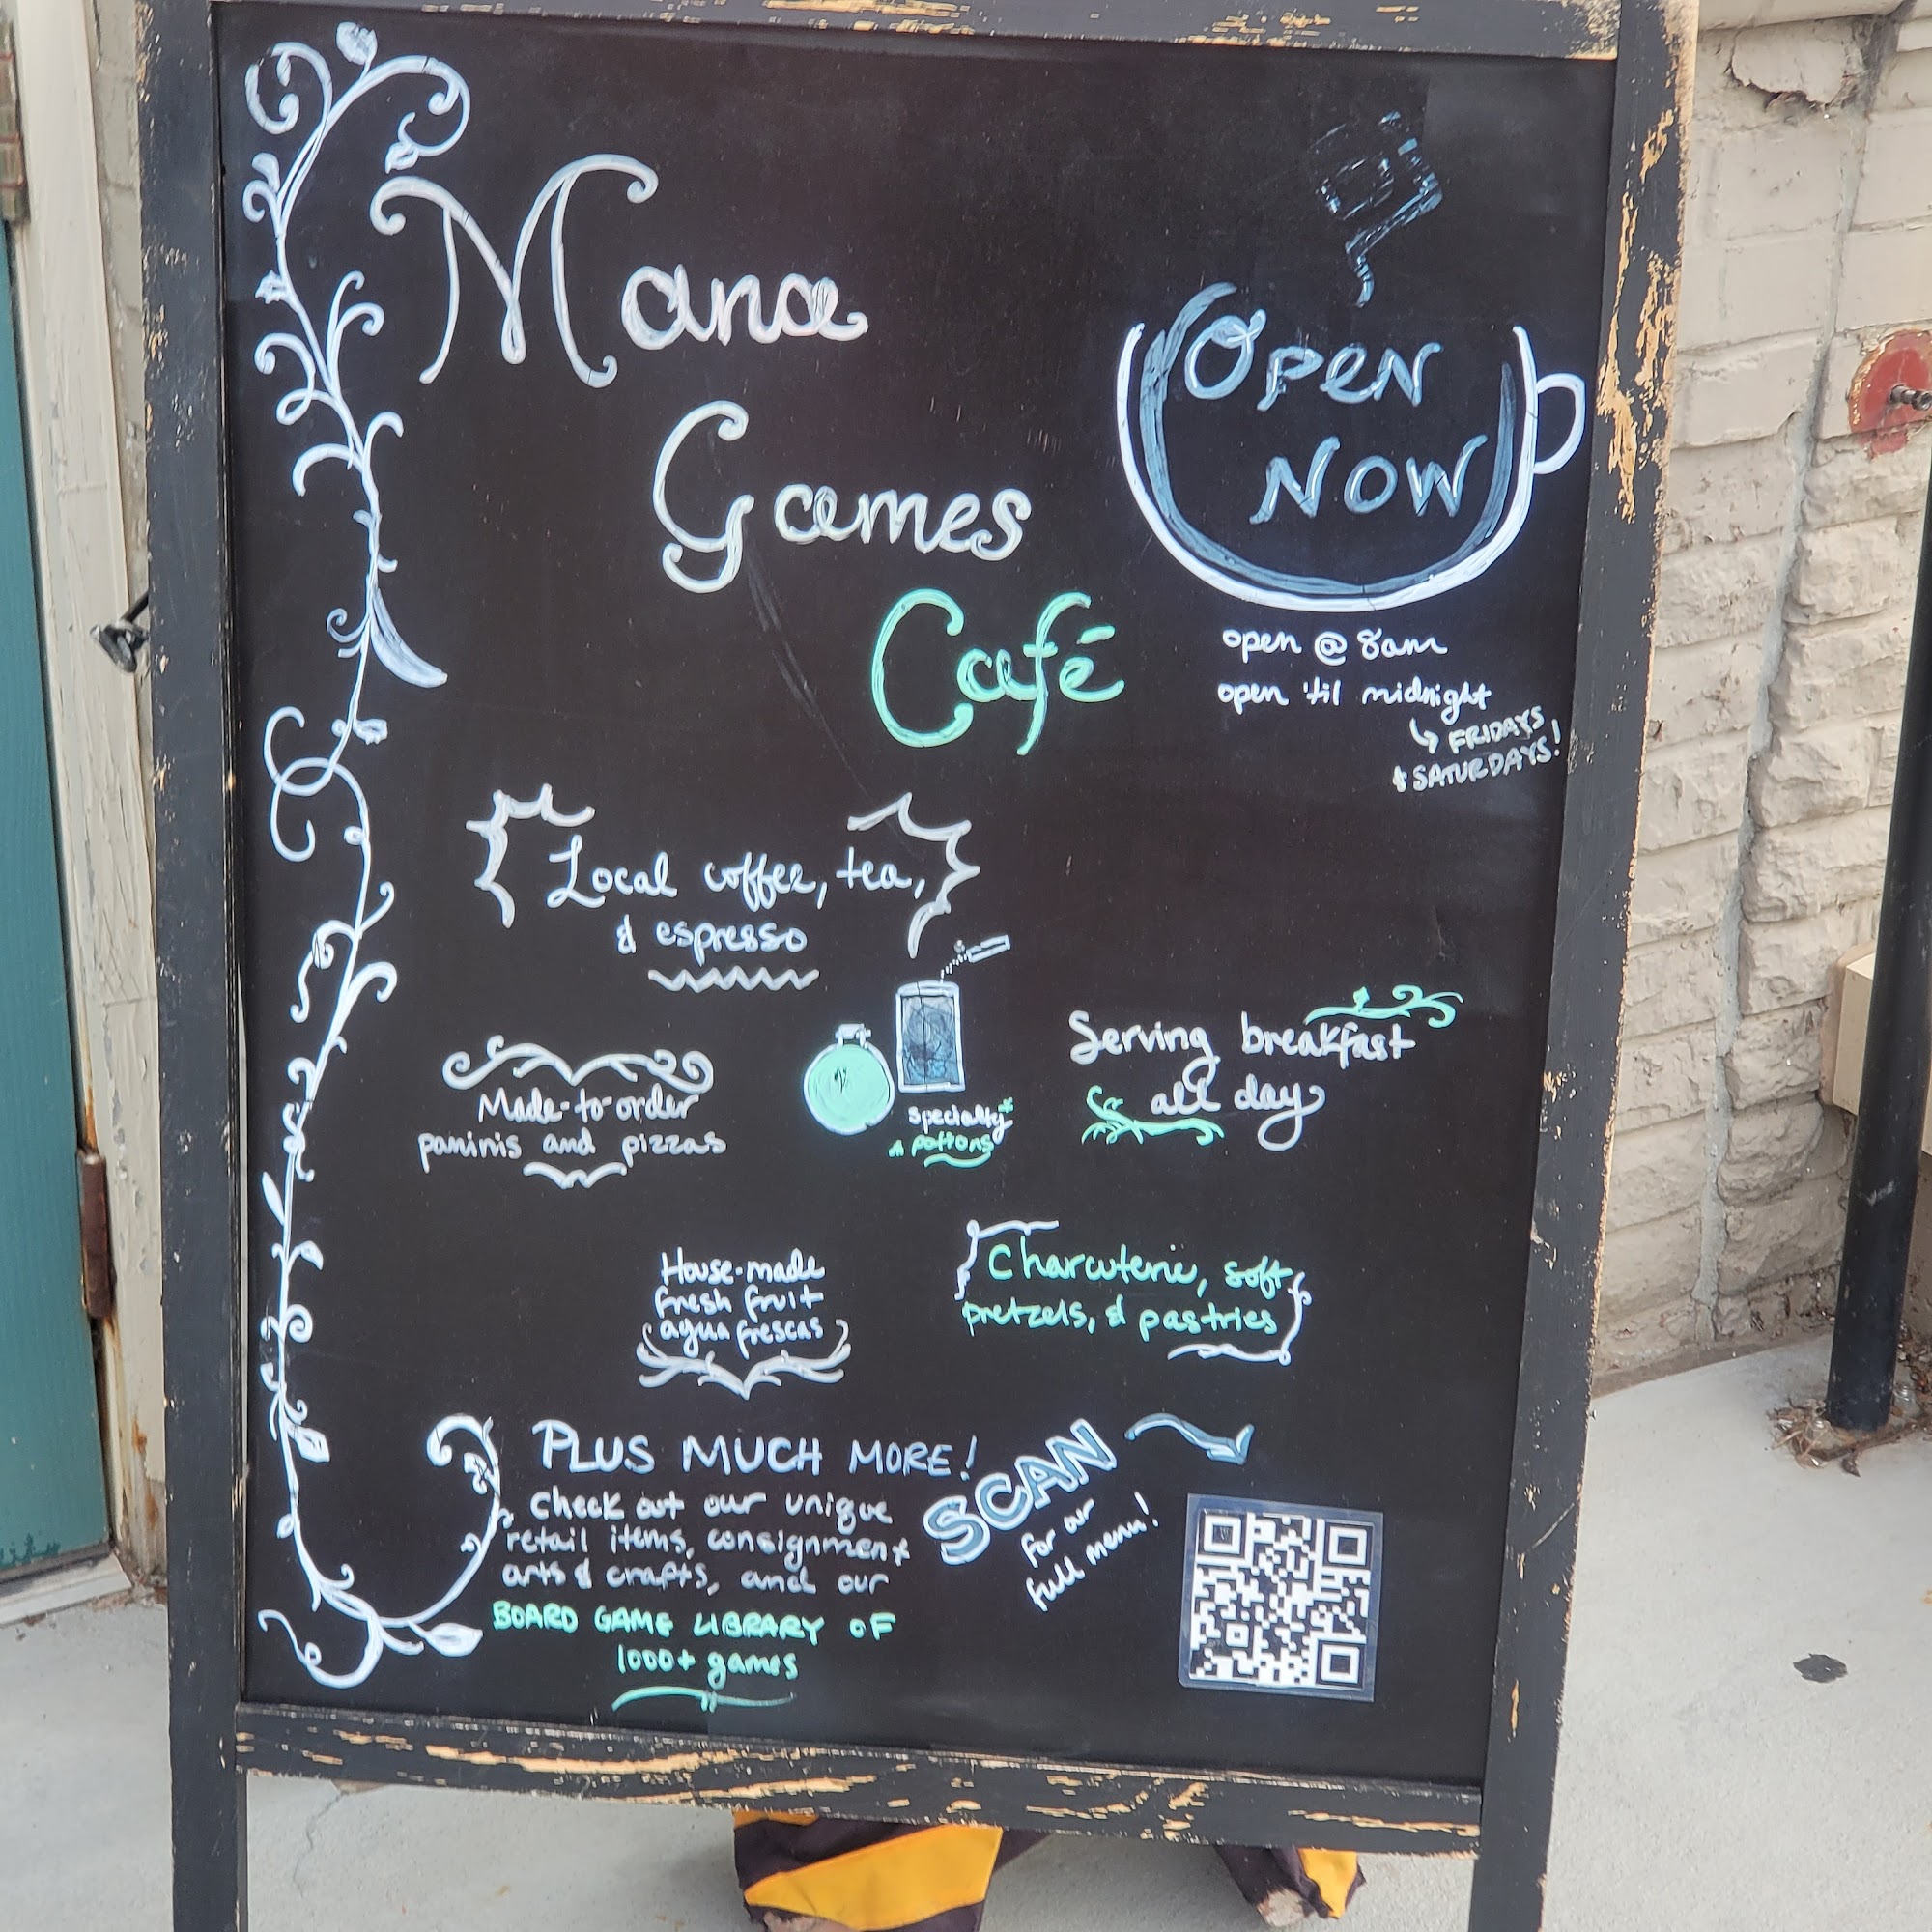 Mana
Games
Café
OPEN
NOW
open @ 8am
open 'til midnight
↳ FRIDAYS
& SATURDAYS!
Local coffee, tea,
& espresso
Made-to-order
paninis and pizzas
specialty*
potions
Serving breakfast
all day
House-made
fresh fruit
agua frescas
Charcuterie, soft
pretzels, & pastries
PLUS MUCH MORE!
Check out our unique
retail items, consignment
arts & crafts, and our
BOARD GAME LIBRARY OF
1000+ games
SCAN
for our
full menu!